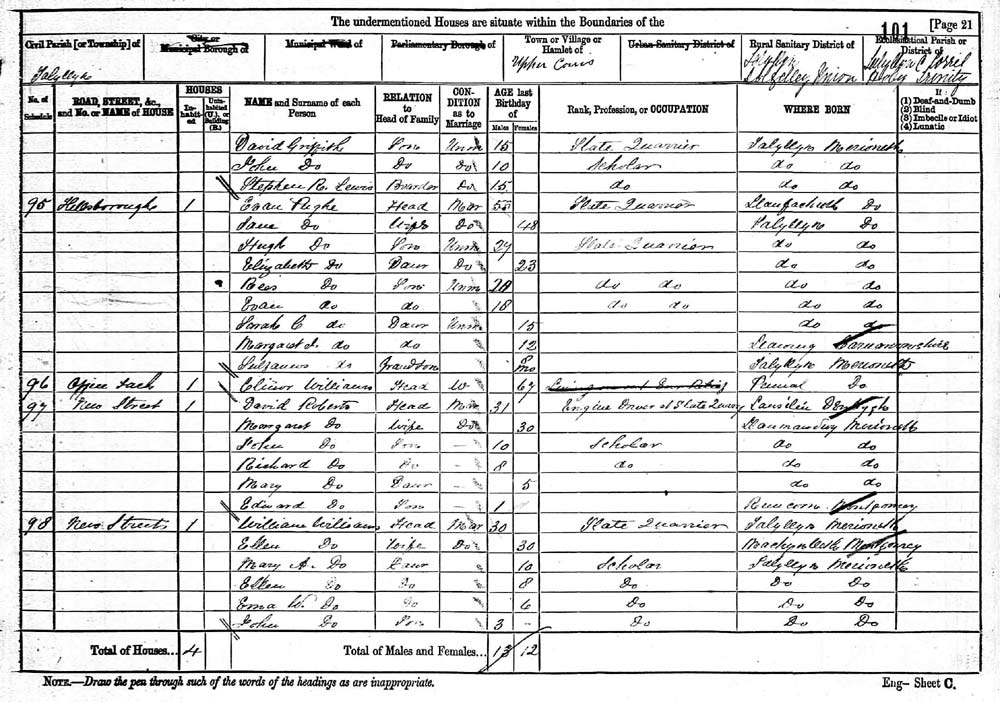 The undermentioned Houses are situate within the Boundaries of the
101 [Page 21
Civil Parish [or Township] of
City or Municipal Borough of
Municipal Ward of
Parliamentary Borough of
Town or Village or Hamlet of
Urban Sanitary District of
Rural Sanitary District of
Ecclesiastical Parish or District of
Talyllyn
Upper Corris
Union
Trinity
No. of Schedule
ROAD, STREET, &c., and No. or NAME of HOUSE
HOUSES
Inhabited
Uninhabited (U.), or Building (B.)
NAME and Surname of each Person
RELATION to Head of Family
CONDITION as to Marriage
AGE last Birthday of
Males
Females
Rank, Profession, or OCCUPATION
WHERE BORN
If
(1) Deaf-and-Dumb
(2) Blind
(3) Imbecile or Idiot
(4) Lunatic
David Griffith Son Unm 15 Slate Quarrier Talyllyn Merioneth
John Do Do Do 10 Scholar do do
Stephen R. Lewis Boarder Do 15 do do do
95 Hillsborough 1 Evan Pughe Head Mar 55 Slate Quarrier Llanfachreth Do
Jane Do Wife Do 48 Talyllyn Do
Hugh Do Son Unm 27 Slate Quarrier do do
Elizabeth Do Daur Do 23 do do
Rees Do Son Unm 20 do do do do
Evan do do 18 do do do do
Sarah C do Daur Unm 15 do do
Margaret J. do do 12 Carnarvonshire
do Grandson 8 mo Talyllyn Merioneth
96 Office 1 Elinor Williams Head W 67 Pennal Do
97 New Street 1 David Roberts Head Mar 31 Engine Driver at Slate Quarry Denbigh
Margaret Do Wife Do 30 Merioneth
John Do Son – 10 Scholar do do
Richard Do Do – 8 do do do
Mary Do Daur – 5 do do
Edward Do Son – 1 Montgomery
98 New Street 1 William Williams Head Mar 30 Slate Quarrier Talyllyn Merioneth
Ellen Do Wife Do 30 Machynlleth Montgomery
Mary A. Do Daur 10 Scholar Talyllyn Merioneth
Ellen Do Do 8 Do Do Do
Ema W. Do Do 6 Do Do Do
John Do Son 3 – Do Do Do
Total of Houses... 4 Total of Males and Females... 13 12
NOTE.—Draw the pen through such of the words of the headings as are inappropriate.
Eng– Sheet C.